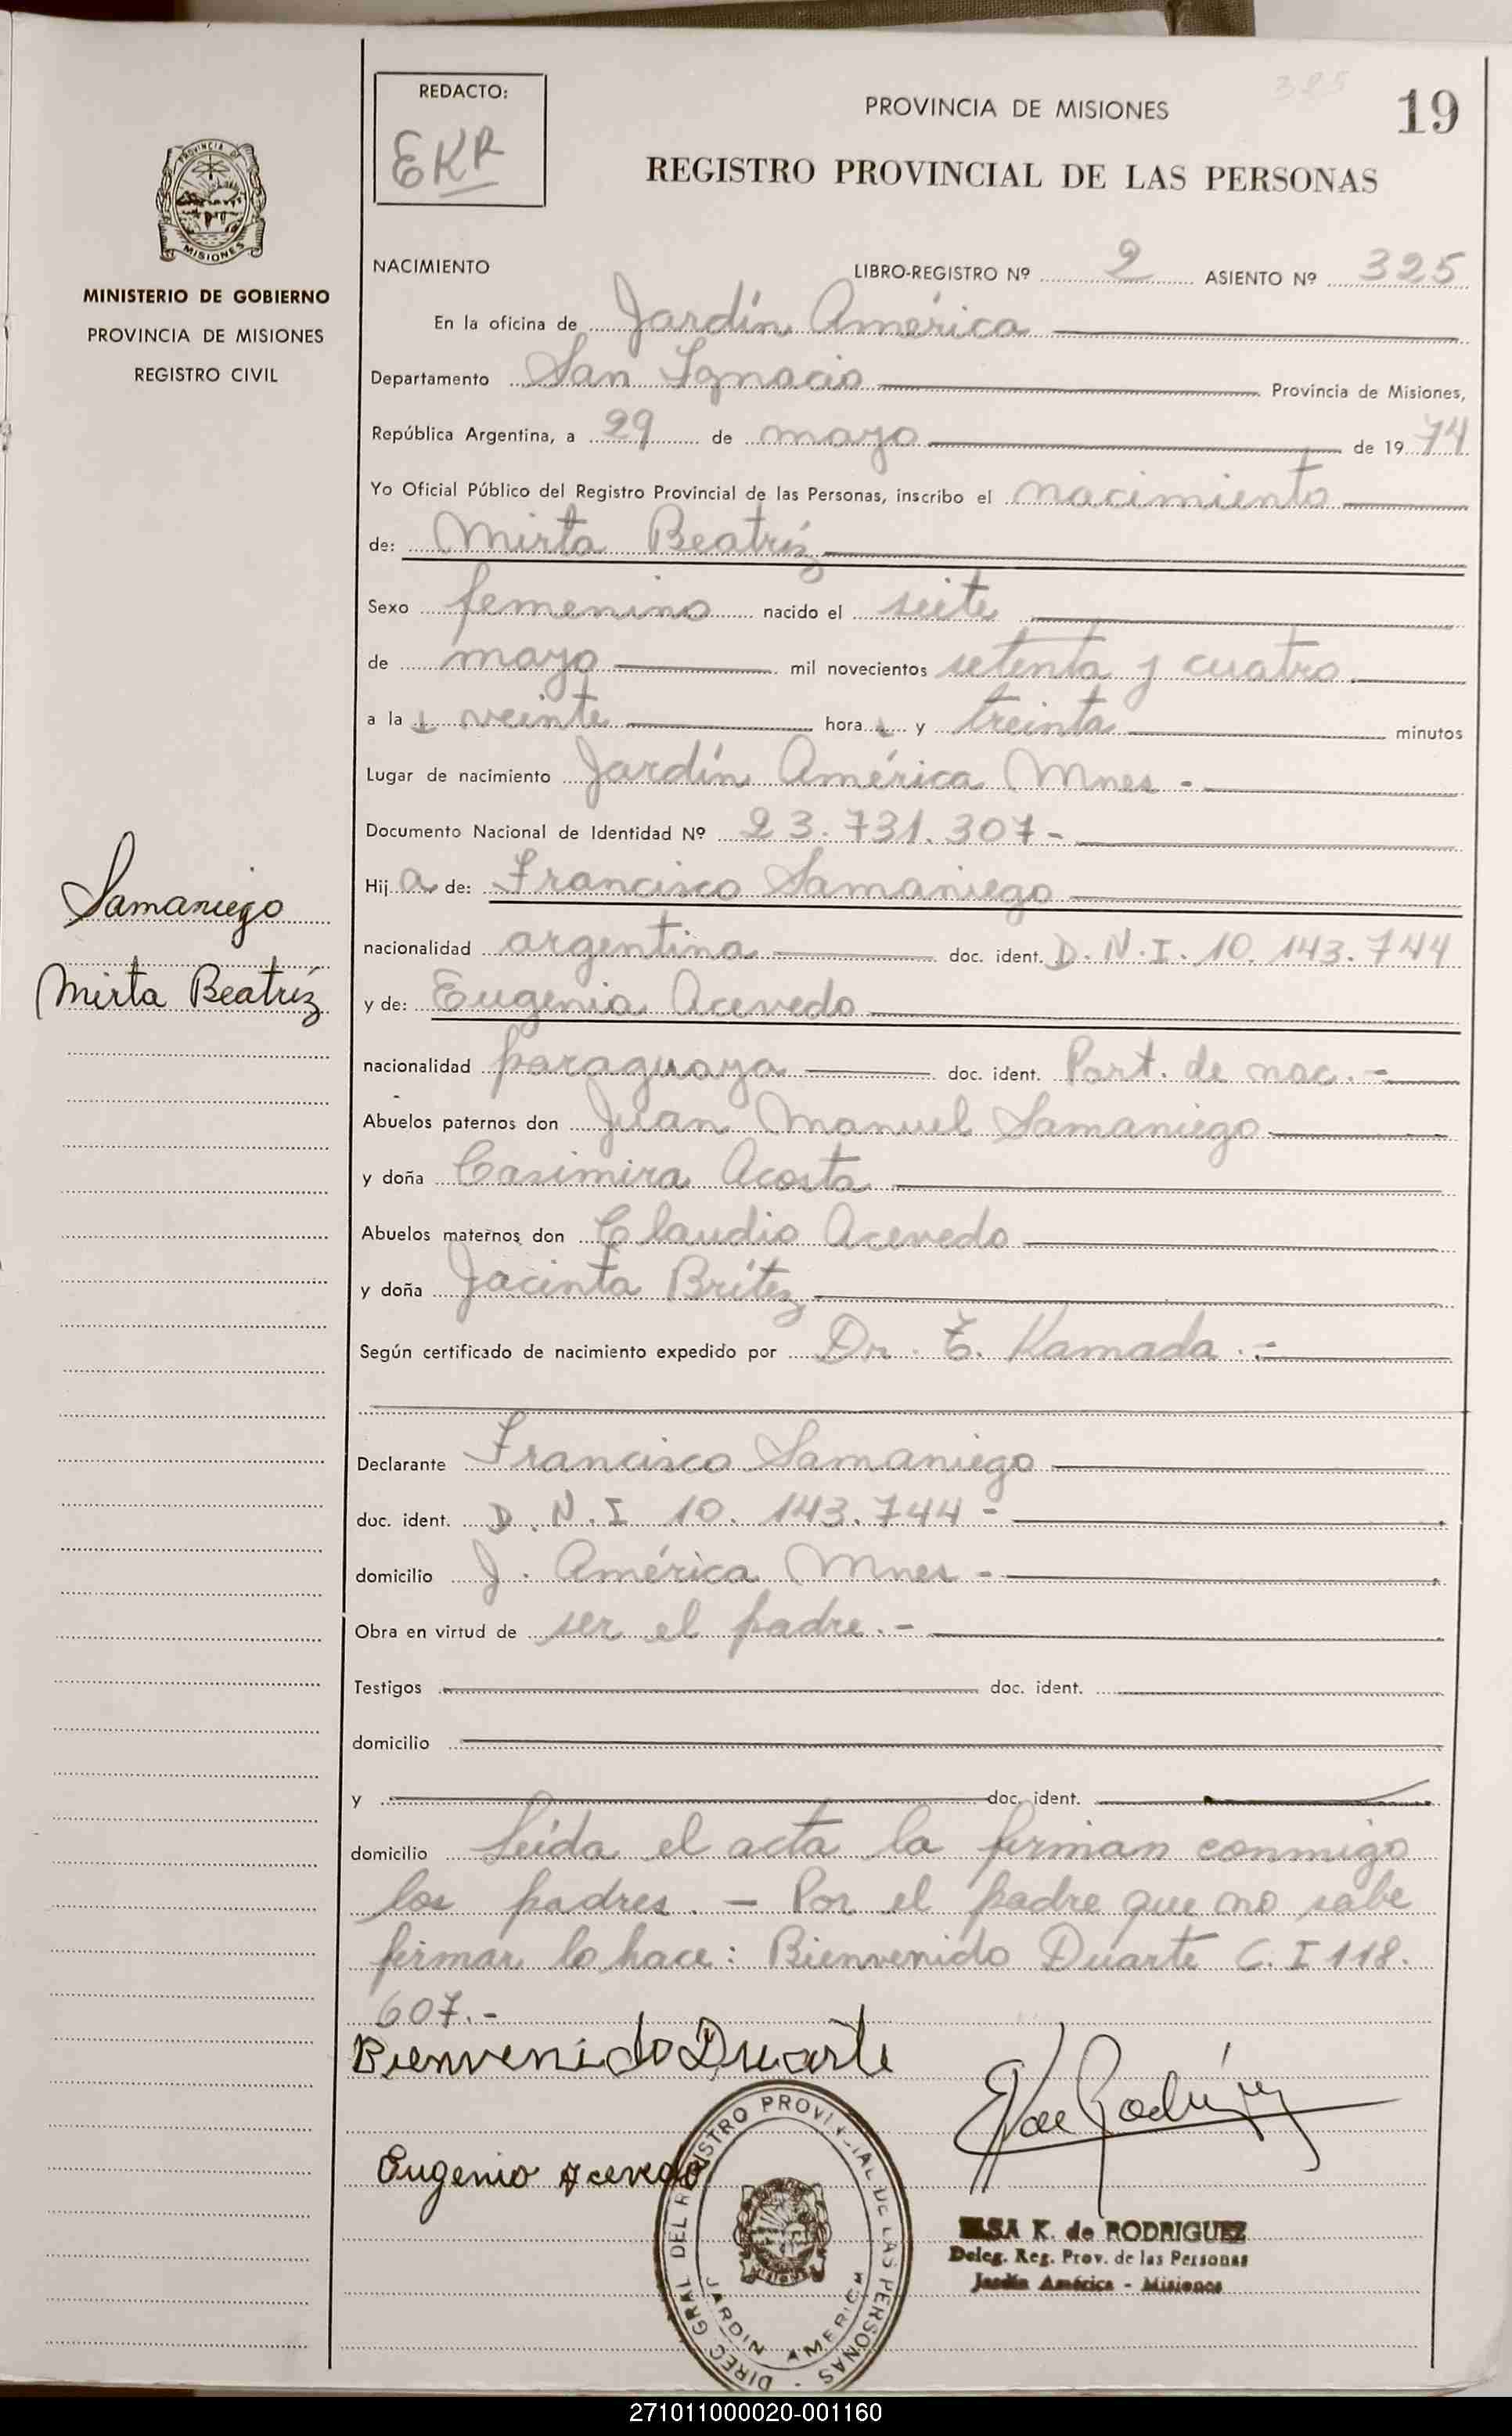 325
19
REDACTO:
EKR
PROVINCIA DE MISIONES
REGISTRO PROVINCIAL DE LAS PERSONAS
PROVINCIA DE
MISIONES
MINISTERIO DE GOBIERNO
PROVINCIA DE MISIONES
REGISTRO CIVIL
NACIMIENTO LIBRO-REGISTRO Nº 2 ASIENTO Nº 325
En la oficina de Jardín América
Departamento San Ignacio Provincia de Misiones,
República Argentina, a 29 de mayo de 1974
Yo Oficial Público del Registro Provincial de las Personas, inscribo el nacimiento
de: Mirta Beatríz
Sexo femenino nacido el seite
de mayo mil novecientos setenta y cuatro
a la s veinte hora s y treinta minutos
Lugar de nacimiento Jardín América Mnes -
Documento Nacional de Identidad Nº 23.731.307-
Hij a de: Francisco Samaniego
Samaniego
nacionalidad argentina doc. ident. D.N.I. 10.143.744
Mirta Beatríz
y de: Eugenia Acevedo
nacionalidad paraguaya doc. ident. Part. de nac.-
Abuelos paternos don Juan Manuel Samaniego
y doña Casimira Acosta
Abuelos maternos don Claudio Acevedo
y doña Jacinta Brítez
Según certificado de nacimiento expedido por Dr. T. Kamada.-
Declarante Francisco Samaniego
doc. ident. D.N.I 10.143.744-
domicilio J. América Mnes-
Obra en virtud de ser el padre.-
Testigos doc. ident.
domicilio
y doc. ident.
domicilio Leída el acta la firman conmigo
los padres.- Por el padre que no sabe
firmar lo hace: Bienvenido Duarte C.I 118.
607.-
Bienvenido Duarte
Eugenio Acevedo
DIREC GRAL DEL REGISTRO PROVINCIAL DE LAS PERSONAS -
MISIONES
JARDIN AMERICA
ELSA K. de RODRIGUEZ
Deleg. Reg. Prov. de las Personas
Jardín América - Misiones
271011000020-001160